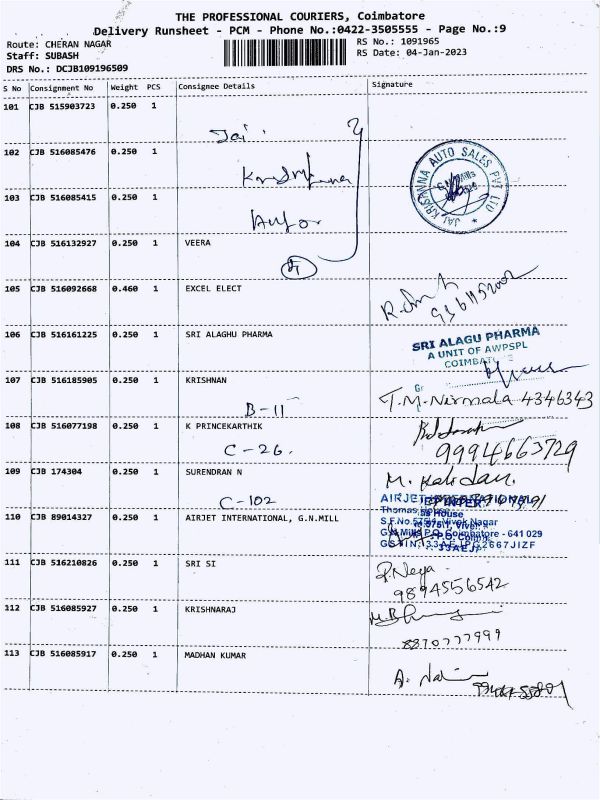 THE PROFESSIONAL COURIERS, Coimbatore
Delivery Runsheet - PCM - Phone No.:0422-3505555 - Page No.:9
Route: CHERAN NAGAR
RS No.: 1091965
Staff: SUBASH
RS Date: 04-Jan-2023
DRS No.: DCJB109196509
S No Consignment No Weight PCS Consignee Details Signature
101 CJB 515903723 0.250 1
Jai
102 CJB 516085476 0.250 1
JAI KRISHNAA AUTO SALES PVT LTD
103 CJB 516085415 0.250 1
104 CJB 516132927 0.250 1 VEERA
105 CJB 516092668 0.460 1 EXCEL ELECT
106 CJB 516161225 0.250 1 SRI ALAGHU PHARMA
SRI ALAGU PHARMA
A UNIT OF AWPSPL
COIMBATORE
107 CJB 516185905 0.250 1 KRISHNAN
T.M. Nirmala 4346343
B-11
108 CJB 516077198 0.250 1 K PRINCEKARTHIK
9994663729
C-26.
109 CJB 174304 0.250 1 SURENDRAN N
C-102
110 CJB 89014327 0.250 1 AIRJET INTERNATIONAL, G.N.MILL
AIRJET
Thomas House
S.F.No.575/1, Vivek Nagar
G.N.Mills P.O, Coimbatore - 641 029
111 CJB 516210826 0.250 1 SRI SI
9894556542
112 CJB 516085927 0.250 1 KRISHNARAJ
8870777999
113 CJB 516085917 0.250 1 MADHAN KUMAR